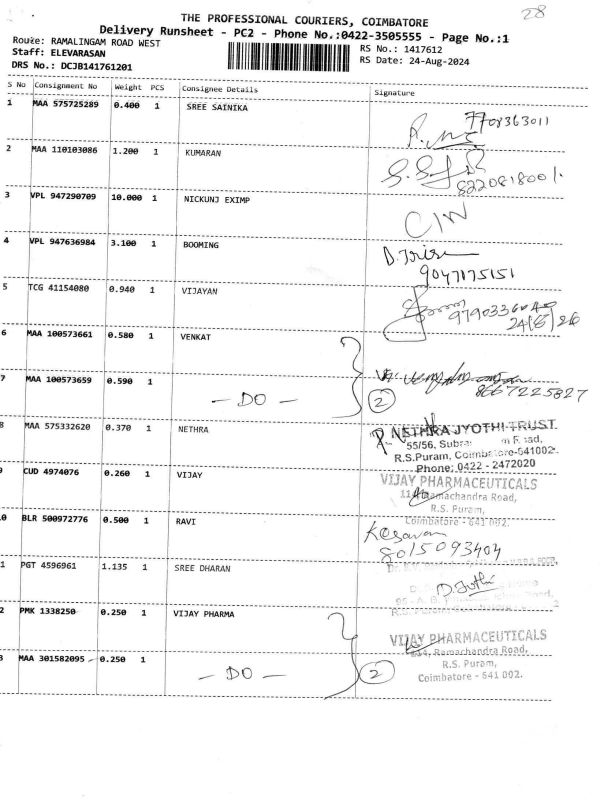 28
THE PROFESSIONAL COURIERS, COIMBATORE
Delivery Runsheet - PC2 - Phone No.:0422-3505555 - Page No.:1
Route: RAMALINGAM ROAD WEST
RS No.: 1417612
Staff: ELEVARASAN
RS Date: 24-Aug-2024
DRS No.: DCJB141761201
S No Consignment No Weight PCS Consignee Details Signature
1 MAA 575725289 0.400 1 SREE SAINIKA
7708363011
2 MAA 110103086 1.200 1 KUMARAN
8220818001
3 VPL 947290709 10.000 1 NICKUNJ EXIMP
4 VPL 947636984 3.100 1 BOOMING
9047175151
5 TCG 41154080 0.940 1 VIJAYAN
6 MAA 100573661 0.580 1 VENKAT
7 MAA 100573659 0.590 1 - DO - 2
8667225827
8 MAA 575332620 0.370 1 NETHRA
NETHRA JYOTHI TRUST
55/56,
R.S.Puram, Coimbatore-641002.
Phone: 0422 - 2472020
9 CUD 4974076 0.260 1 VIJAY
VIJAY PHARMACEUTICALS
Ramachandra Road,
R.S. Puram,
Coimbatore - 641 002.
0 BLR 500972776 0.500 1 RAVI
Kesavan
8015093404
1 PGT 4596961 1.135 1 SREE DHARAN
2 PMK 1338250 0.250 1 VIJAY PHARMA
3 MAA 301582095 0.250 1 - DO - 2
VIJAY PHARMACEUTICALS
Ramachandra Road,
R.S. Puram,
Coimbatore - 641 002.